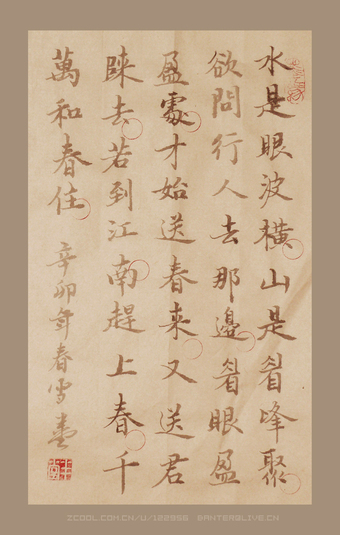 水是眼波橫山是眉峰聚
欲問行人去那邊眉眼盈
盈處才始送春來又送君
歸去若到江南趕上春千
萬和春住 辛卯年春雪